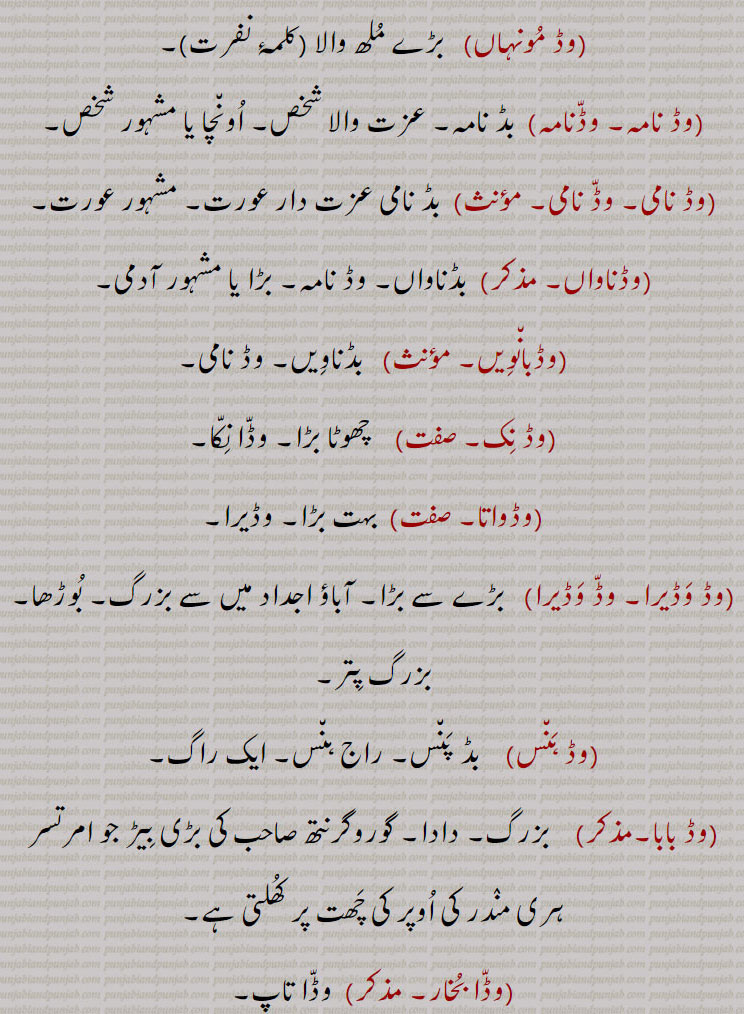 (وڈ مُونہاں) بڑے مُلھ والا (کلمۂ نفرت)۔
(وڈ نامہ۔ وڈّنامہ) بڈ نامہ۔ عزت والا شخص۔ اُونّچا یا مشہور شخص۔
(وڈ نامی۔ وڈّ نامی۔ مؤنث) بڈ نامی عزت دار عورت۔ مشہور عورت۔
(وڈناواں۔ مذکر) بڈناواں۔ وڈ نامہ۔ بڑا یا مشہور آدمی۔
(وڈبانّوِیں۔ مؤنث) بڈناوِیں۔ وڈ نامی۔
(وڈ نِک۔ صفت) چھوٹا بڑا۔ وڈّا نِکّا۔
(وڈواتا۔ صفت) بہت بڑا۔ وڈیرا۔
(وڈ وَڈیرا۔ وڈّ وَڈیرا) بڑے سے بڑا۔ آباؤ اجداد میں سے بزرگ۔ بُوڑھا۔
بزرگ پِتر۔
(وڈ ہَنّس) بڈ پَنّس۔ راج ہنّس۔ ایک راگ۔
(وڈ بابا۔مذکر) بزرگ۔ دادا۔ گوروگرنتھ صاحب کی بڑی بِیڑ جو امرتسر
ہری منْدر کی اُوپر کی چَھت پر کُھلتی ہے۔
(وڈّا بُخار۔ مذکر) وڈّا تاپ۔